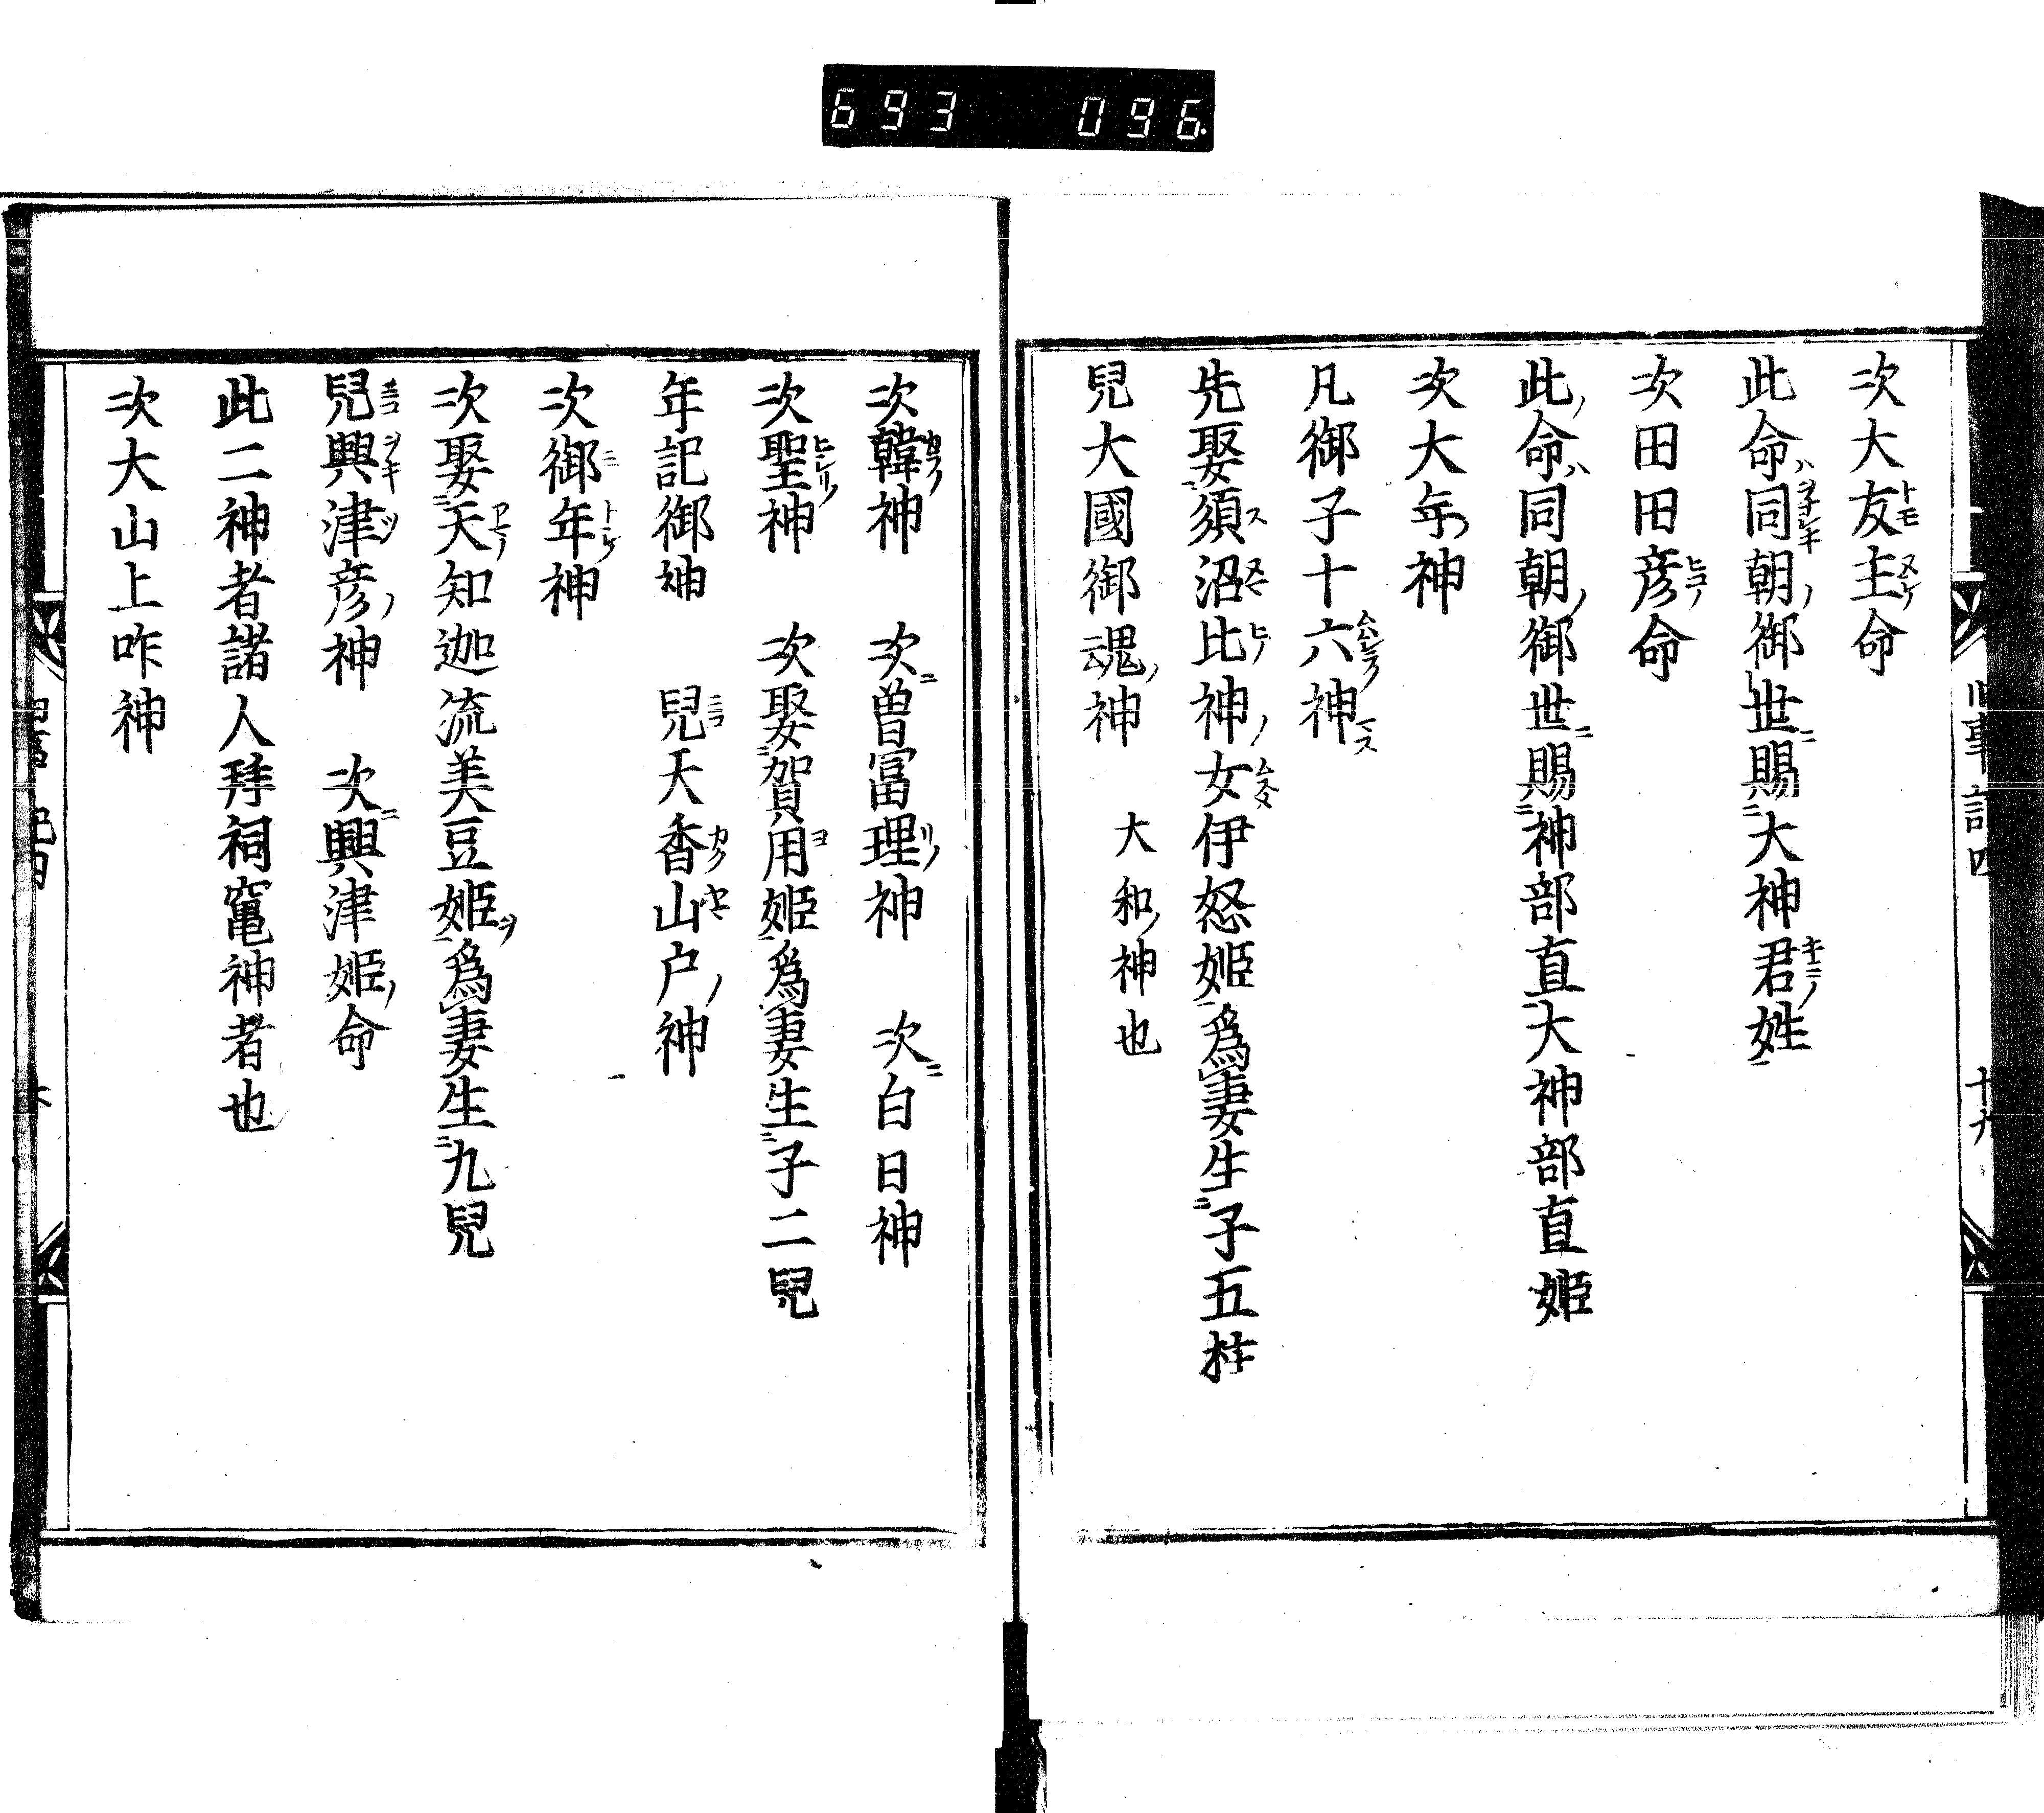 693 096
次大友主命
此命同朝御世賜大神君姓
次田田彦命
此命同朝御世賜神部直大神部直姫
次大年神
凡御子十六神
先娶須沼比神女伊怒姫為妻生子五柱
兒大國御魂神 大和神也
次韓神 次曽富理神 次白日神
次聖神 次娶賀用姫為妻生子二兒
年記御神 兒天香山戸神
次御年神
次娶天知迦流美豆姫為妻生九兒
兒興津彦神 次興津姫命
此二神者諸人拜祠竃神者也
次大山上咋神